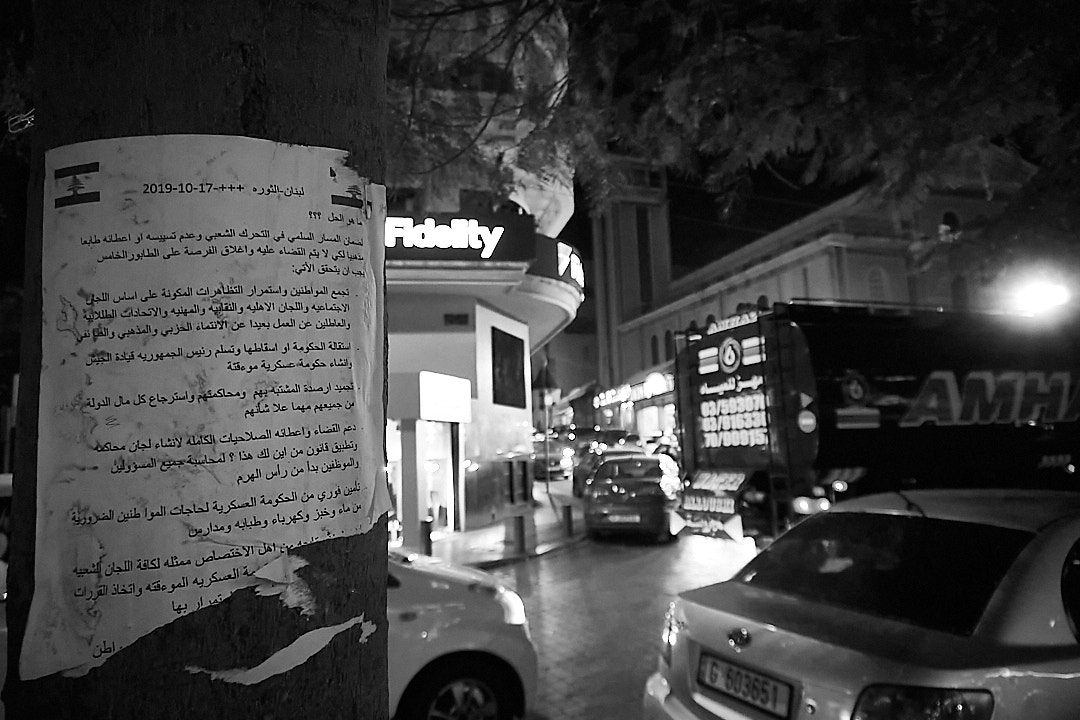 لبنان-الثوره +++-17-10-2019
ما هو الحل ؟؟؟
لضمان المسار السلمي في التحرك الشعبي وعدم تسييسه او اعطائه طابعا
مذهبيا لكي لا يتم القضاء عليه واغلاق الفرصة على الطابور الخامس
يجب ان يتحقق الأتي:
تجمع المواطنين واستمرار التظاهرات المكونة على اساس اللجان
الاجتماعيه واللجان الاهليه والنقابيه والمهنيه والاتحادات الطلابية
والعاطلين عن العمل بعيدا عن الانتماء الحزبي والمذهبي والطائفي
استقالة الحكومة او اسقاطها وتسلم رئيس الجمهوريه قيادة الجيش
وانشاء حكومة-عسكرية موءقتة
تجميد ارصدة المشتبه بهم ومحاكمتهم واسترجاع كل مال الدولة
من جميعهم مهما علا شأنهم
دعم القضاء واعطائه الصلاحيات الكامله لإنشاء لجان محاكمة
وتطبيق قانون من اين لك هذا ؟ لمحاسبة جميع المسؤولين
والموظفين بدأ من رأس الهرم
تأمين فوري من الحكومة العسكرية لحاجات المواطنين الضرورية
من ماء وخبز وكهرباء وطبابه ومدارس
من اهل الاختصاص ممثله لكافة اللجان الشعبيه
العسكريه الموءقته واتخاذ القررات
بها
Fidelity
AMHAZ
مهز للمياه
AMHA
G 603651